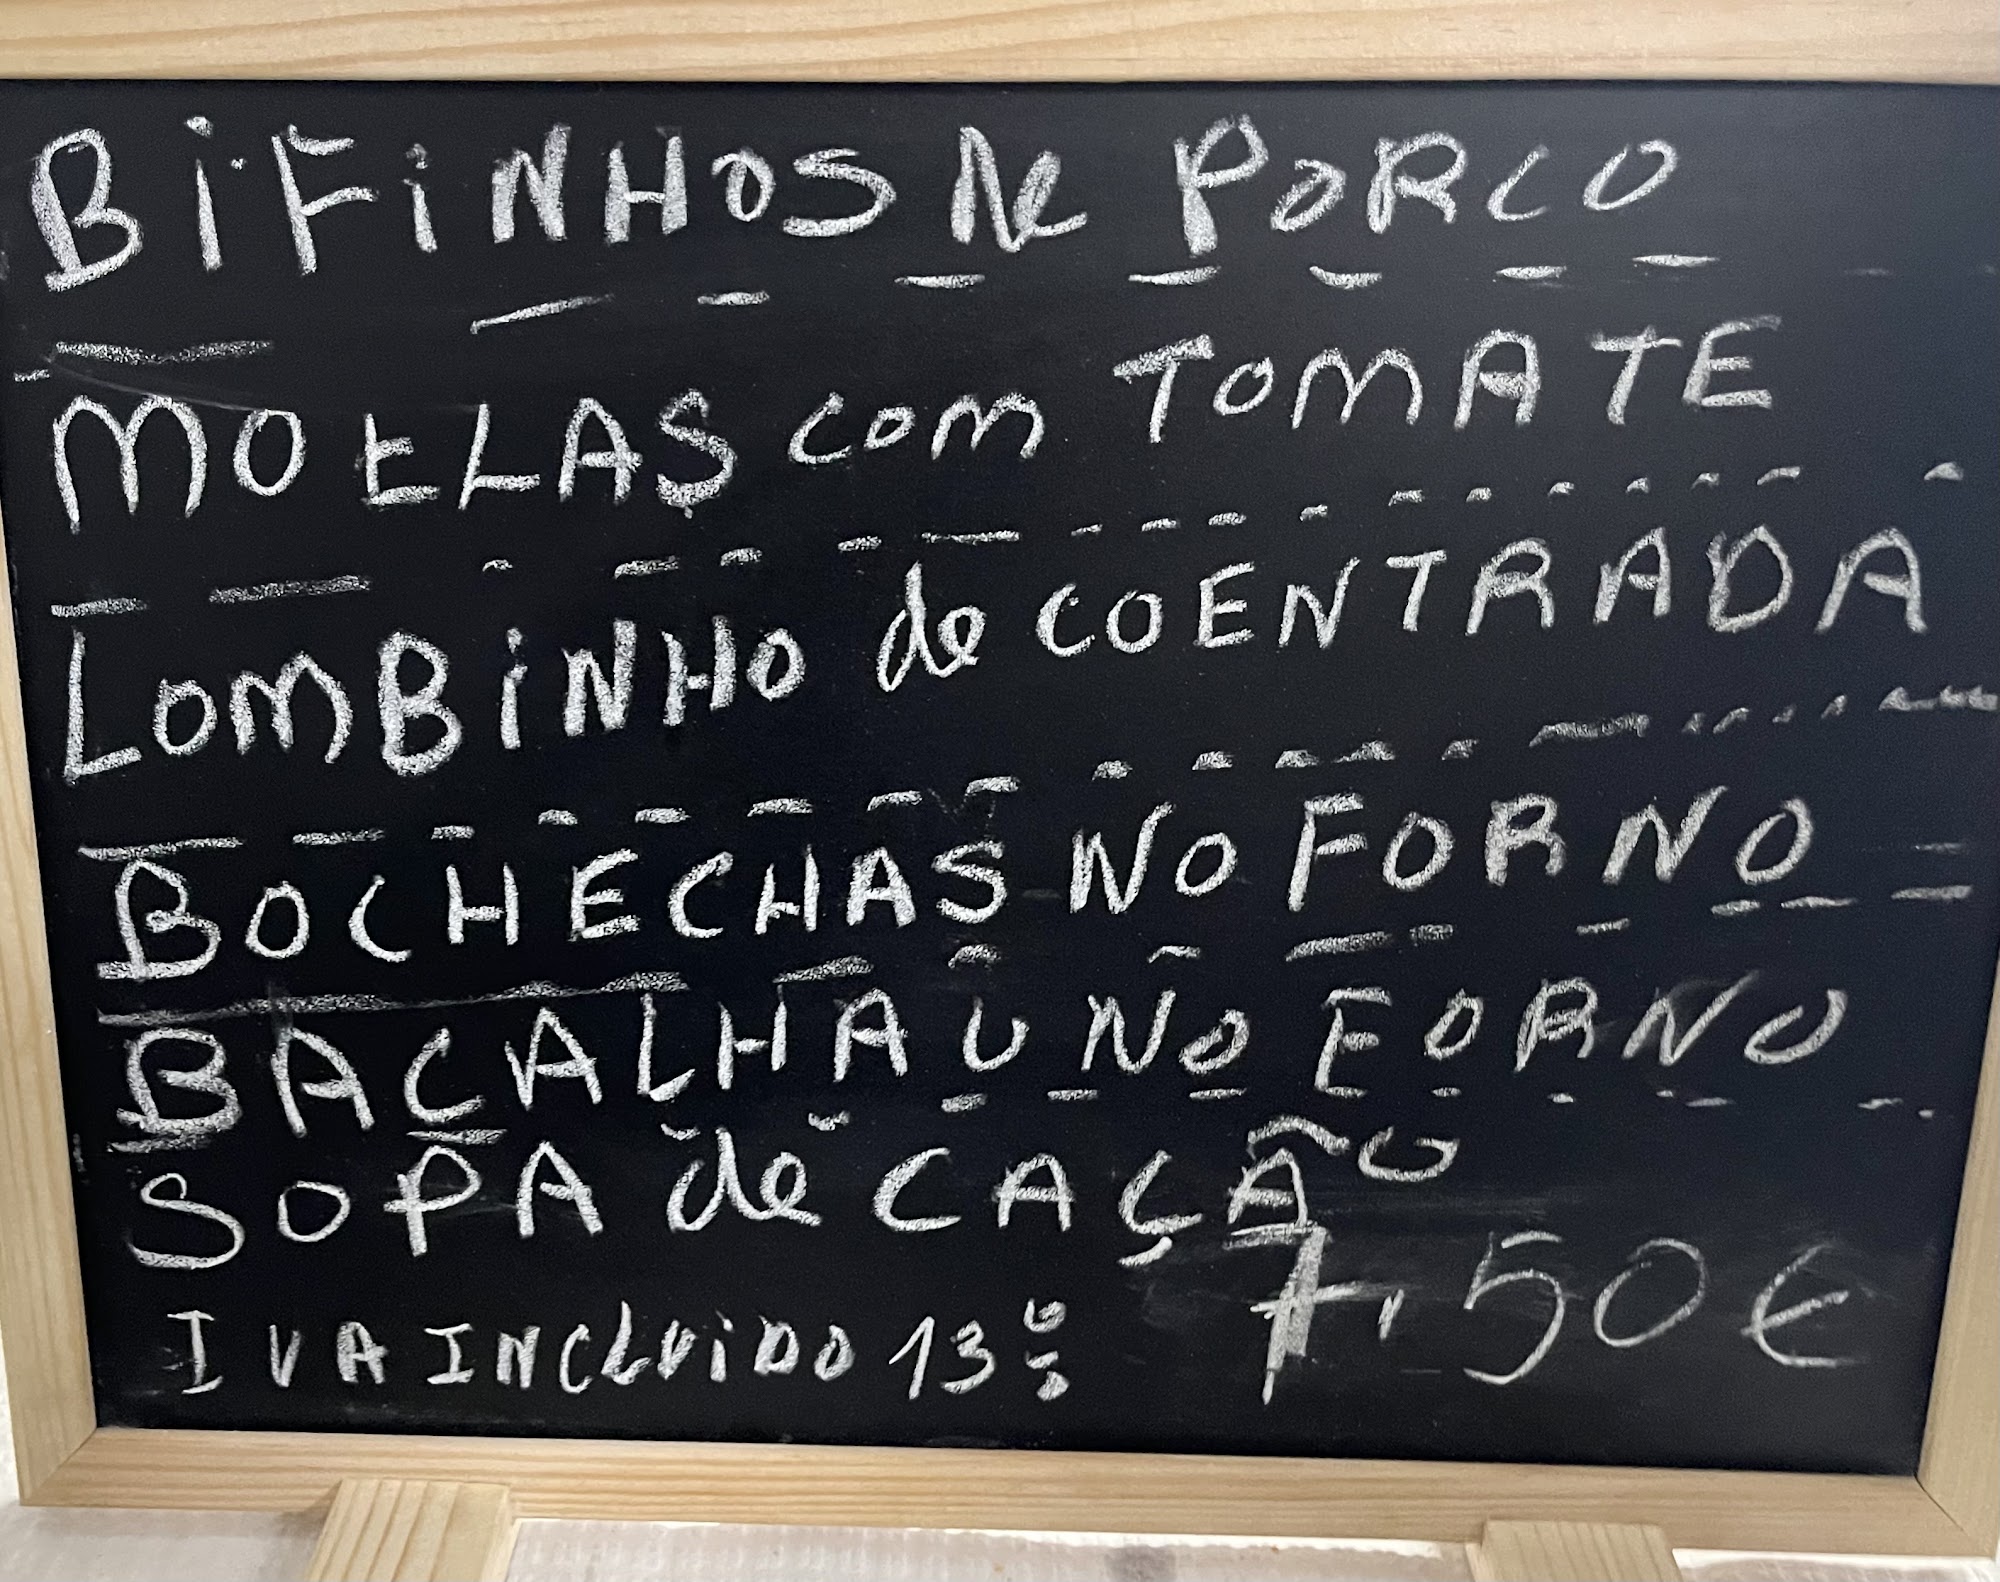 BiFiNHOS de PORCO
MOELAS com TOMATE
LOMBiNHO de COENTRADA
BOCHECHAS NO FORNO
BACALHAU NO FORNO
SOPA de CAÇA
IVA INCLUiDO 13% 7,50€